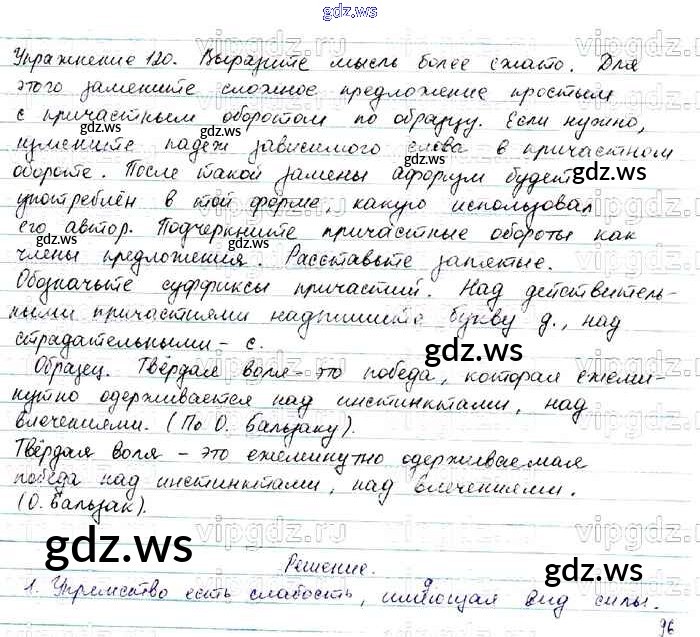 gdz.ws
Упражнение 120. Выразите мысль более сжато. Для
этого замените сложное предложение простым
с причастным оборотом по образцу. Если нужно,
измените падеж зависимого слова в причастном
обороте. После такой замены афоризм будет
употреблён в той форме, какую использовал
его автор. Подчеркните причастные обороты как
члены предложения. Расставьте запятые.
Обозначьте суффиксы причастий. Над действитель-
ными причастиями надпишите букву д., над
страдательными – с.
Образец. Твёрдая воля – это победа, которая ежеми-
нутно одерживается над инстинктами, над
влечениями. (По О. Бальзаку).
Твёрдая воля – это ежеминутно одерживаемая
победа над инстинктами, над влечениями.
(О. Бальзак).
gdz.ws
Решение.
д
1. Упрямство есть слабость, имеющая вид силы.
96